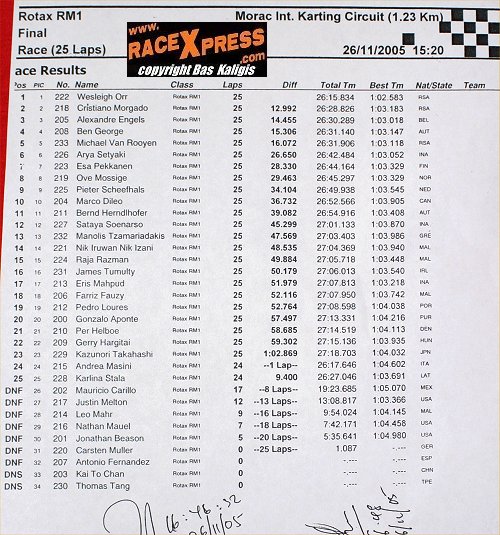 Rotax RM1
Morac Int. Karting Circuit (1.23 Km)
Final
Race (25 Laps)
26/11/2005 15:20
www.
RACEXPRESS
.com
copyright Bas Kaligis
ace Results
Pos PIC No. Name Class Laps Diff Total Tm Best Tm Nat/State Team
1 1 222 Wesleigh Orr Rotax RM1 25 26:15.834 1:02.583 RSA
2 2 218 Cristiano Morgado Rotax RM1 25 12.992 26:28.826 1:03.183 RSA
3 3 205 Alexandre Engels Rotax RM1 25 14.455 26:30.289 1:03.018 BEL
4 4 208 Ben George Rotax RM1 25 15.306 26:31.140 1:03.147 AUT
5 5 233 Michael Van Rooyen Rotax RM1 25 16.072 26:31.906 1:03.118 RSA
6 6 226 Arya Setyaki Rotax RM1 25 26.650 26:42.484 1:03.052 INA
7 7 223 Esa Pekkanen Rotax RM1 25 28.330 26:44.164 1:03.329 FIN
8 8 219 Ove Mossige Rotax RM1 25 29.463 26:45.297 1:03.329 NOR
9 9 225 Pieter Scheefhals Rotax RM1 25 34.104 26:49.938 1:03.545 NED
10 10 204 Marco Dileo Rotax RM1 25 36.732 26:52.566 1:03.905 CAN
11 11 211 Bernd Herndlhofer Rotax RM1 25 39.082 26:54.916 1:03.408 AUT
12 12 227 Sataya Soenarso Rotax RM1 25 45.299 27:01.133 1:03.870 INA
13 13 232 Manolis Tzamariadakis Rotax RM1 25 47.569 27:03.403 1:03.986 GRE
14 14 221 Nik Iruwan Nik Izani Rotax RM1 25 48.535 27:04.369 1:03.940 MAL
15 15 224 Raja Razman Rotax RM1 25 49.884 27:05.718 1:03.448 MAL
16 16 231 James Tumulty Rotax RM1 25 50.179 27:06.013 1:03.540 IRL
17 17 213 Eris Mahpud Rotax RM1 25 51.979 27:07.813 1:03.218 INA
18 18 206 Farriz Fauzy Rotax RM1 25 52.116 27:07.950 1:03.742 MAL
19 19 212 Pedro Loures Rotax RM1 25 52.764 27:08.598 1:04.038 POR
20 20 200 Gonzalo Aponte Rotax RM1 25 57.497 27:13.331 1:04.216 PUR
21 21 210 Per Helboe Rotax RM1 25 58.685 27:14.519 1:04.113 DEN
22 22 209 Gerry Hargitai Rotax RM1 25 59.302 27:15.136 1:03.935 HUN
23 23 229 Kazunori Takahashi Rotax RM1 25 1:02.869 27:18.703 1:04.032 JPN
24 24 215 Andrea Masini Rotax RM1 24 --1 Lap-- 26:17.646 1:04.602 ITA
25 25 228 Karlina Stala Rotax RM1 24 9.400 26:27.046 1:03.691 LAT
DNF 26 202 Mauricio Carillo Rotax RM1 17 --8 Laps-- 19:23.685 1:05.070 MEX
DNF 27 217 Justin Melton Rotax RM1 12 --13 Laps-- 13:08.817 1:03.366 USA
DNF 28 214 Leo Mahr Rotax RM1 9 --16 Laps-- 9:54.024 1:04.145 MAL
DNF 29 216 Nathan Mauel Rotax RM1 7 --18 Laps-- 7:42.171 1:04.458 USA
DNF 30 201 Jonathan Beason Rotax RM1 5 --20 Laps-- 5:35.641 1:04.980 USA
DNF 31 220 Carsten Muller Rotax RM1 0 --25 Laps-- 1.087 -.--- GER
DNF 32 207 Antonio Fernandez Rotax RM1 0 -.--- -.--- ESP
DNS 33 203 Kai To Chan Rotax RM1 0 -.--- -.--- CHN
DNS 34 230 Thomas Tang Rotax RM1 0 -.--- -.--- TPE
16:46:32
26/11/05